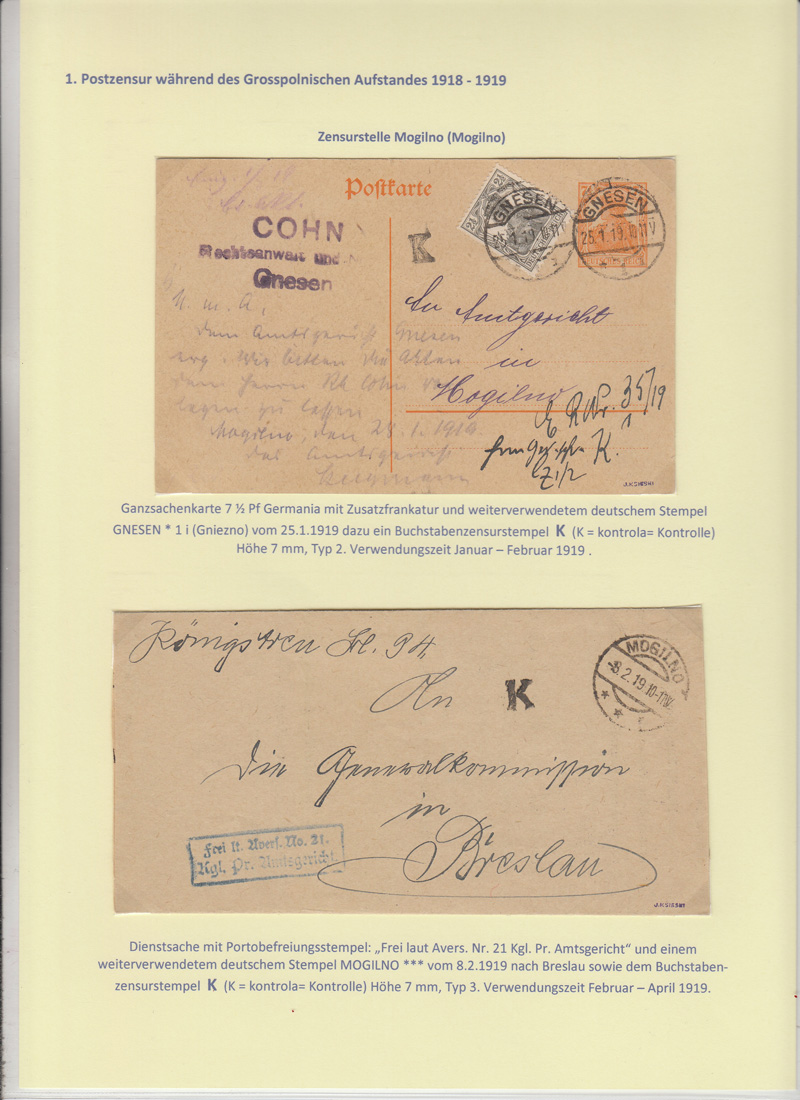 1. Postzensur während des Grosspolnischen Aufstandes 1918 - 1919
Zensurstelle Mogilno (Mogilno)
Postkarte
COHN
Rechtsanwalt und
Gnesen
K
GNESEN
25.1.19.
GNESEN
25.1.19. 10-11V
U. m. A,
dem Amtsgericht Gnesen
erg. Wir bitten die Akten
dem Herrn RA Cohn vor
legen zu lassen
Mogilno, den 28.1.1919.
Das Amtsgericht
An Amtgericht
in
Mogilno
35/19
K.
J.KSISSKI
Ganzsachenkarte 7 ½ Pf Germania mit Zusatzfrankatur und weiterverwendetem deutschem Stempel
GNESEN * 1 i (Gniezno) vom 25.1.1919 dazu ein Buchstabenzensurstempel K (K = kontrola= Kontrolle)
Höhe 7 mm, Typ 2. Verwendungszeit Januar – Februar 1919 .
Königstreu Bl. 94.
An
K
MOGILNO
-8.2.19.10-11V.
* * *
die Generalkommission
in
Breslau
Frei lt. Avers. No. 21.
Kgl. Pr. Amtsgericht
J.KSISSKI
Dienstsache mit Portobefreiungsstempel: „Frei laut Avers. Nr. 21 Kgl. Pr. Amtsgericht“ und einem
weiterverwendetem deutschem Stempel MOGILNO *** vom 8.2.1919 nach Breslau sowie dem Buchstaben-
zensurstempel K (K = kontrola= Kontrolle) Höhe 7 mm, Typ 3. Verwendungszeit Februar – April 1919.